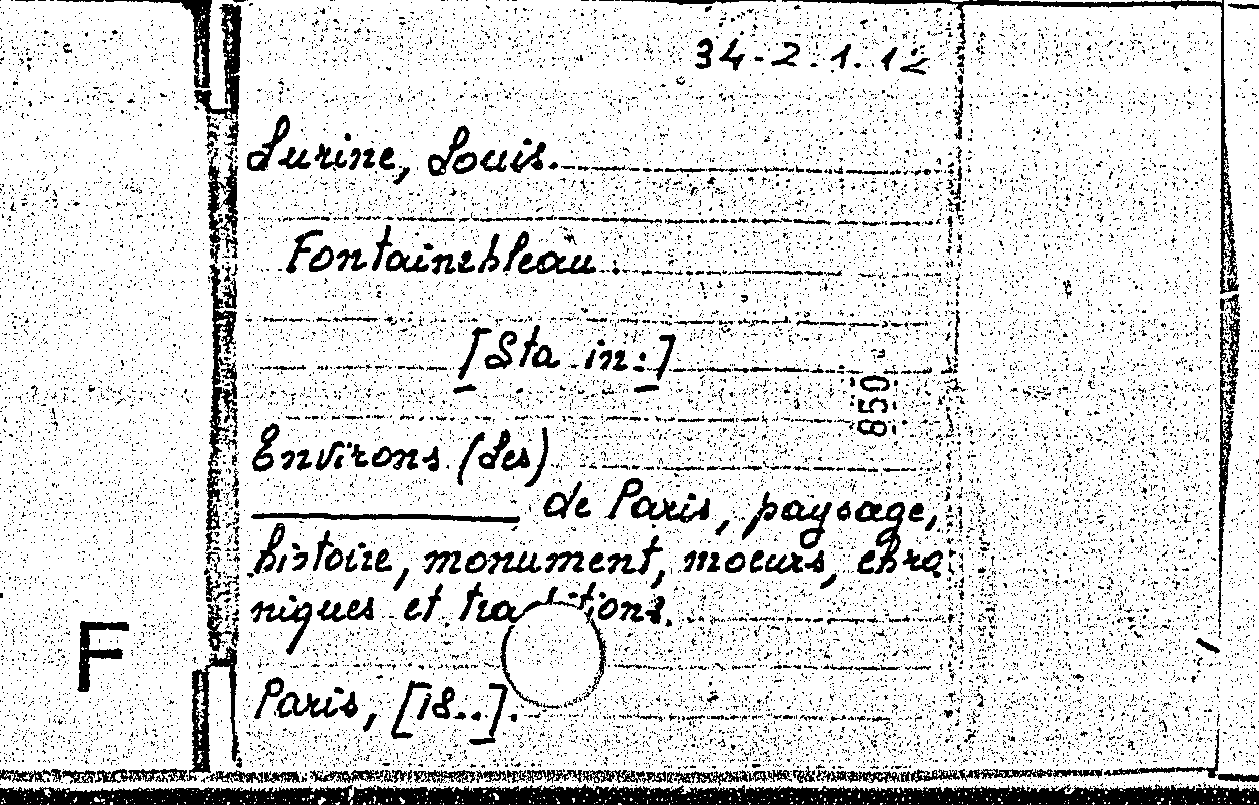 34-2.1.12
Lurine, Louis.
Fontainebleau.
[Sta in:]
850
Environs (Les)
de Paris, paysage,
histoire, monument, moeurs, chro
niques et traditions.
F
Paris, [18..].